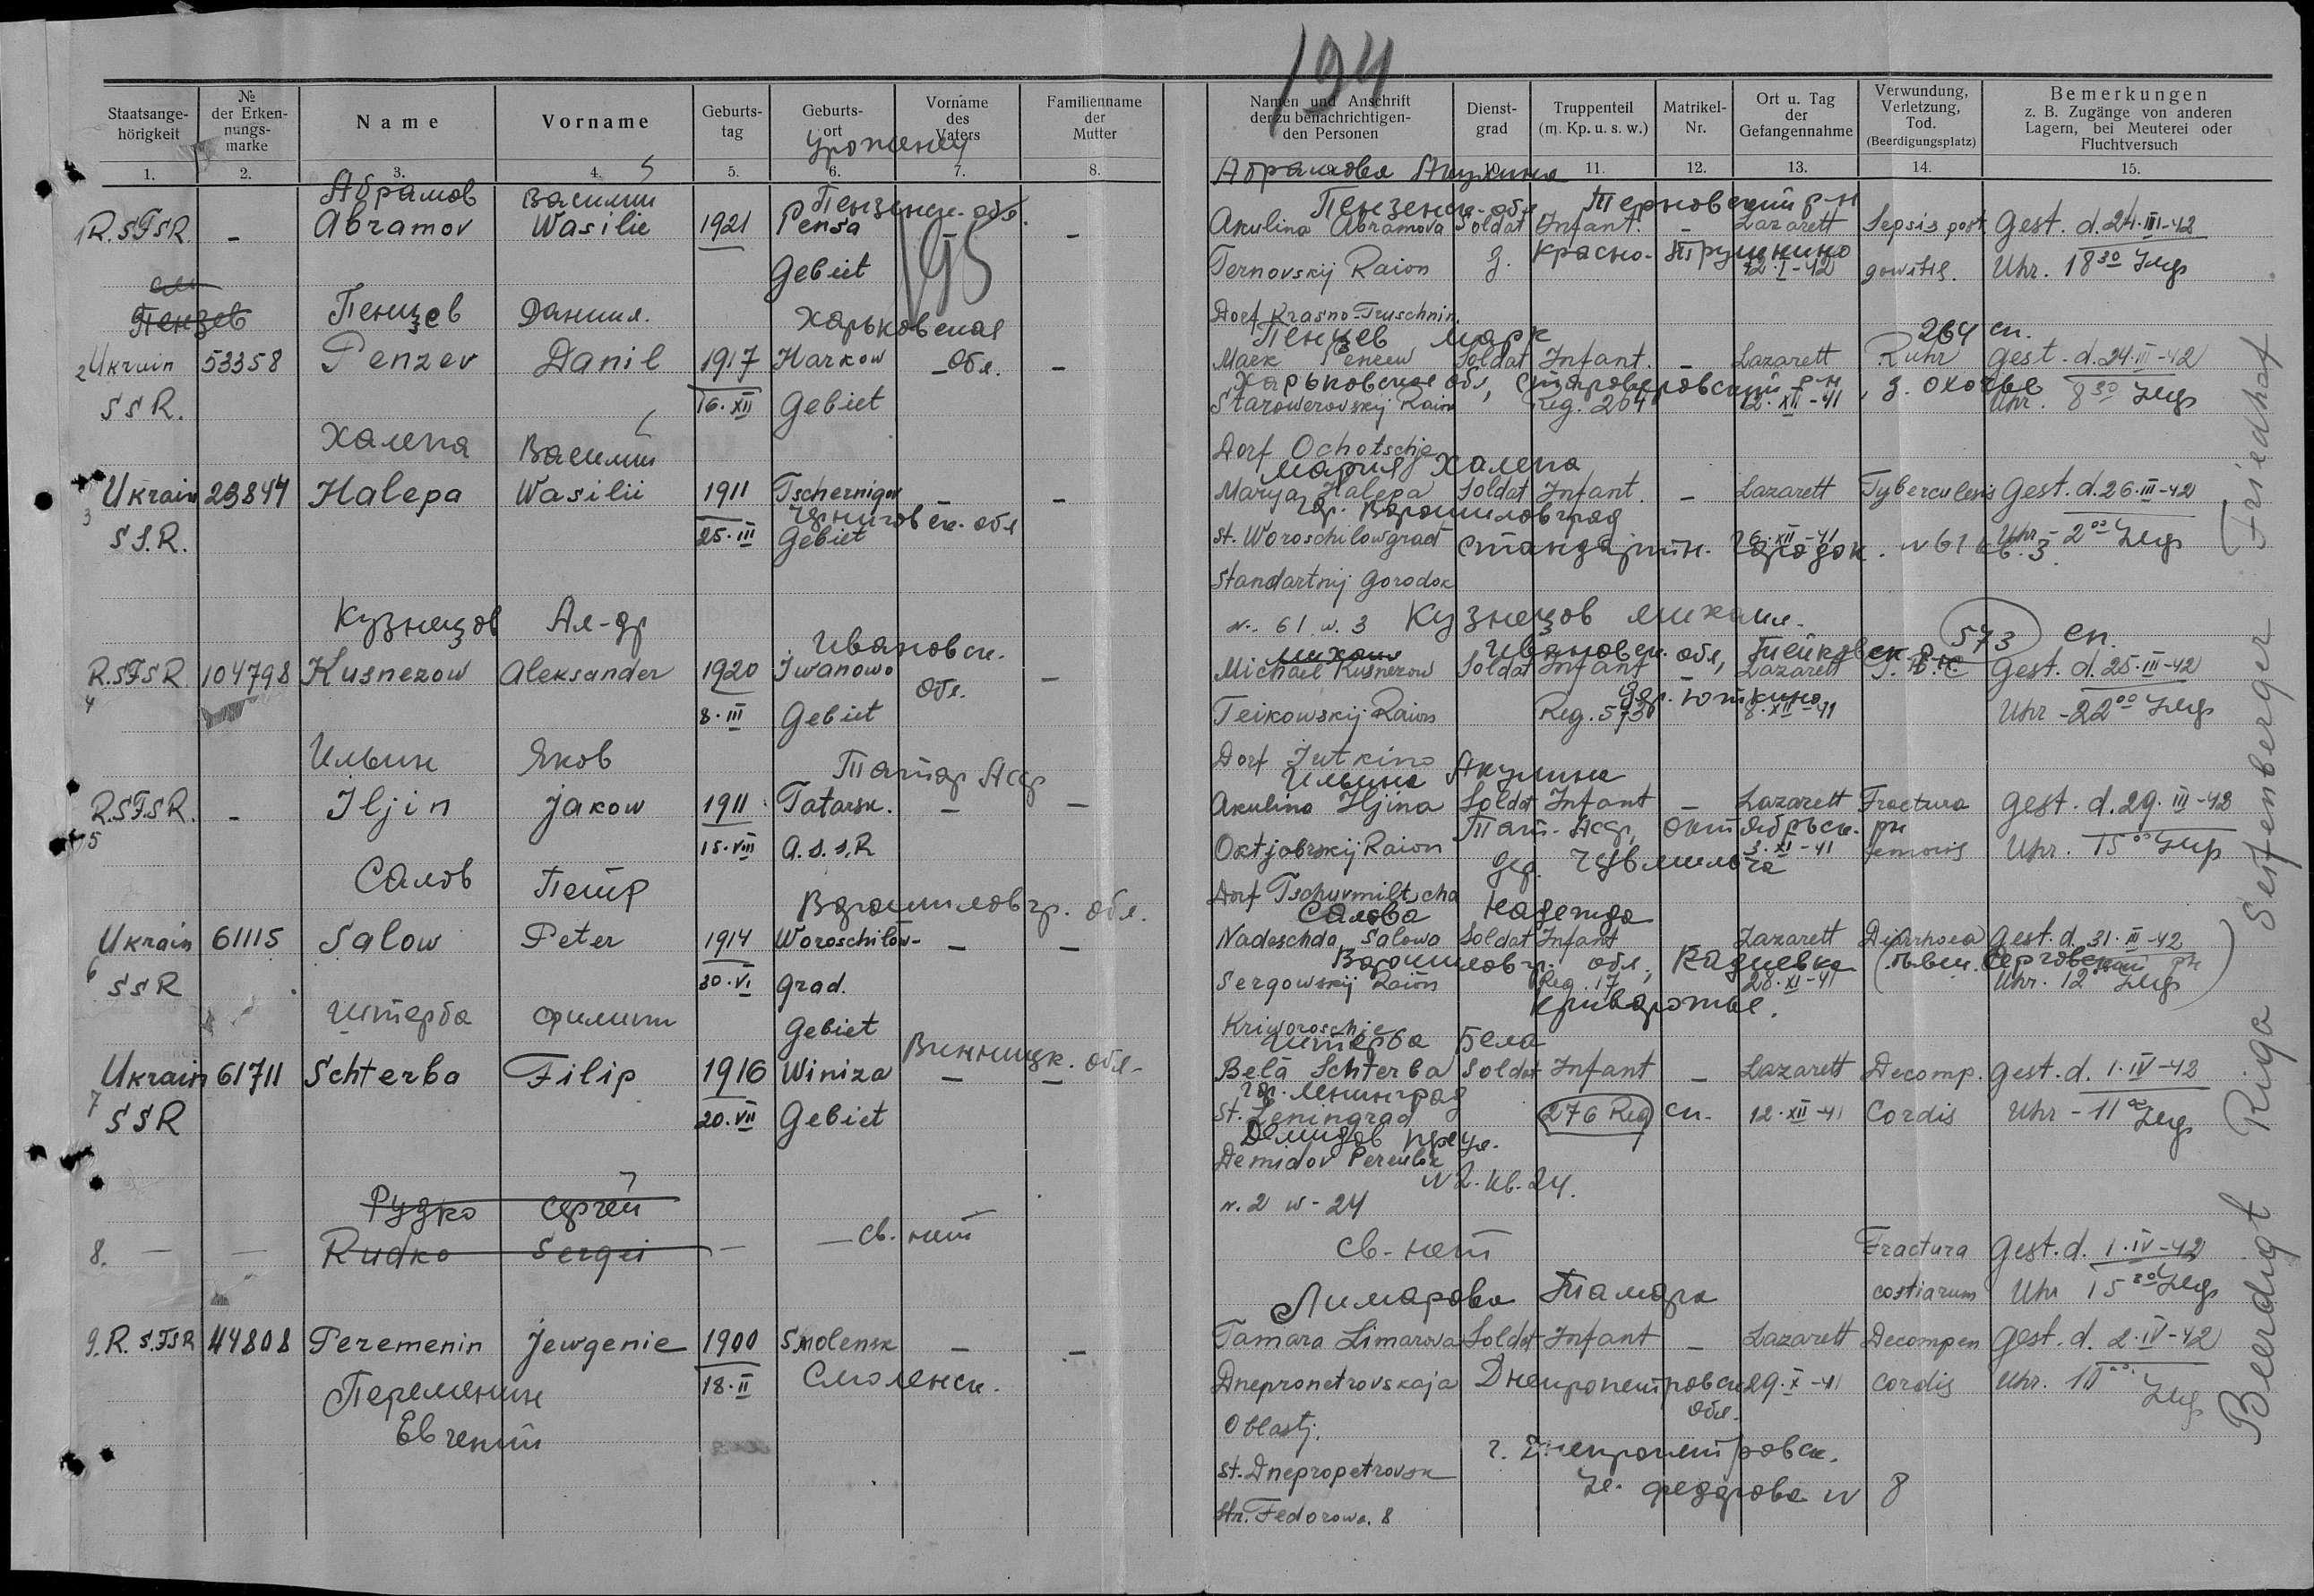 194
Staatsange-hörigkeit
№ der Erken-nungs-marke
Name
Vorname
Geburts-tag
Geburts-ort
Vorname des Vaters
Familienname der Mutter
Namen und Anschrift der zu benachrichtigen-den Personen
Dienst-grad
Truppenteil (m. Kp. u. s. w.)
Matrikel-Nr.
Ort u. Tag der Gefangennahme
Verwundung, Verletzung, Tod. (Beerdigungsplatz)
Bemerkungen z. B. Zugänge von anderen Lagern, bei Meuterei oder Fluchtversuch
Уроженец
1. 2. 3. 4. 5. 6. 7. 8. 10. 11. 12. 13. 14. 15.
Абрамов Василий Пензенск. обл. Абрамова Акулина
Пензенск. обл Терновский р-н
1 R.SFSR. - Abramov Wasilie 1921 Pensa - - Akulina Abramova Soldat Infant. - Lazarett Sepsis post Gest. d. 24.III-42
Gebiet 195 Ternovskij Raion д. Красно-Трушнино 12.I-42 Uhr. 18 30
Пензев
Пенцев Даниил. Харьковская Dorf Krasno-Truschnin.
Пенцев Марк 264 сп.
2 Ukrain 53358 Penzev Danil 1917 Harkow - обл. - Mark Soldat Infant. - Lazarett Ruhr Gest. d. 24.III-42
Харьковская обл, Старовировский р-н, д. Охочее
SSR. 16.XII Gebiet Starowerovskij Raion Reg. 264 12.XII-41 Uhr. 8 30
Халепа Василий Dorf Ochotschje
Мария Халепа
3 Ukrain 23844 Halepa Wasilii 1911 Tschernigov - - Marya Halepa Soldat Infant. - Lazarett Tyberculesis Gest. d. 26.III-42
Черниговск. обл гр. Ворошиловград
SS.R. 25.III Gebiet St. Woroschilowgrad Стандартн. Городок. N 61 кв. 3. 26.XII-41 Uhr - 2 00
Standartnij Gorodok
Кузнецов Ал-др N. 61 w. 3 Кузнецов Михаил.
Ивановск. обл. Михаил Ивановск. обл, Тейковск. 573 сп.
4 R.SFSR 104798 Kusnezow Aleksander 1920 Iwanowo - Michael Kusnezow Soldat Infant - Lazarett Gest. d. 25.III-42
8.III Gebiet Teikowskij Raion Reg. 573 дер. Юткино 8.XII-41 Uhr - 22 00
Ильин Яков Татар Асср Dorf Jutkino
Ильина Акулина
5 R.SFSR. - Iljin Jakow 1911 Tatarsk. - - Akulina Iljina Soldat Infant - Lazarett Fractura Gest. d. 29.III-42
Тат. Асср, Октябрьск. рн
15.VIII A.S.S.R Oktjabrskij Raion 3.XI-41 femoris Uhr. 15 00
дер. Чувмилтча
Салов Петр Ворошиловгр. обл. Dorf Tschuvmiltscha
Салова Надежда
6 Ukrain 61115 Salow Peter 1914 Woroschilow- - - Nadeschda Salowa Soldat Infant Lazarett Diarrhoea Gest. d. 31.III-42
Ворошиловгр. обл., Кадиевка (бывш. Серговский рн)
SSR 30.VI grad. Sergowskij Raion Reg. 17 28.XI-41 Uhr. 12
Криворожье.
Штерба Филипп Gebiet Kriworoschje
Винницк. обл. Штерба Бела
7 Ukrain 61711 Schterba Filip 1916 Winiza - - Bela Schterba Soldat Infant - Lazarett Decomp. Gest. d. 1.IV-42
гр. Ленинград
SSR 20.VII Gebiet St. Leningrad 276 Reg сп. 12.XII-41 Cordis Uhr - 11
Демидов пр.
Demidov Pereulk
N 2. кв. 24.
N. 2 w - 24
Рудко Сергей
8. - - Rudko Sergei - св. нет св. нет Fractura Gest. d. 1.IV-42
costiarum Uhr 15
Лимарова Тамара
9. R.SFSR 44808 Peremenin Jewgenie 1900 Smolensk - - Tamara Limarova Soldat Infant - Lazarett Decompen Gest. d. 2.IV-42
Переменин 18.II Смоленск. Dnepropetrovskaja Днепропетровск обл. 29.X-41 Cordis Uhr. 10
Евгений Oblastj.
г. Днепропетровск.
St. Dnepropetrovsk
ул. Федорова N 8
Str. Fedorowa. 8
Beerdigt Riga Seifenberger Friedhof